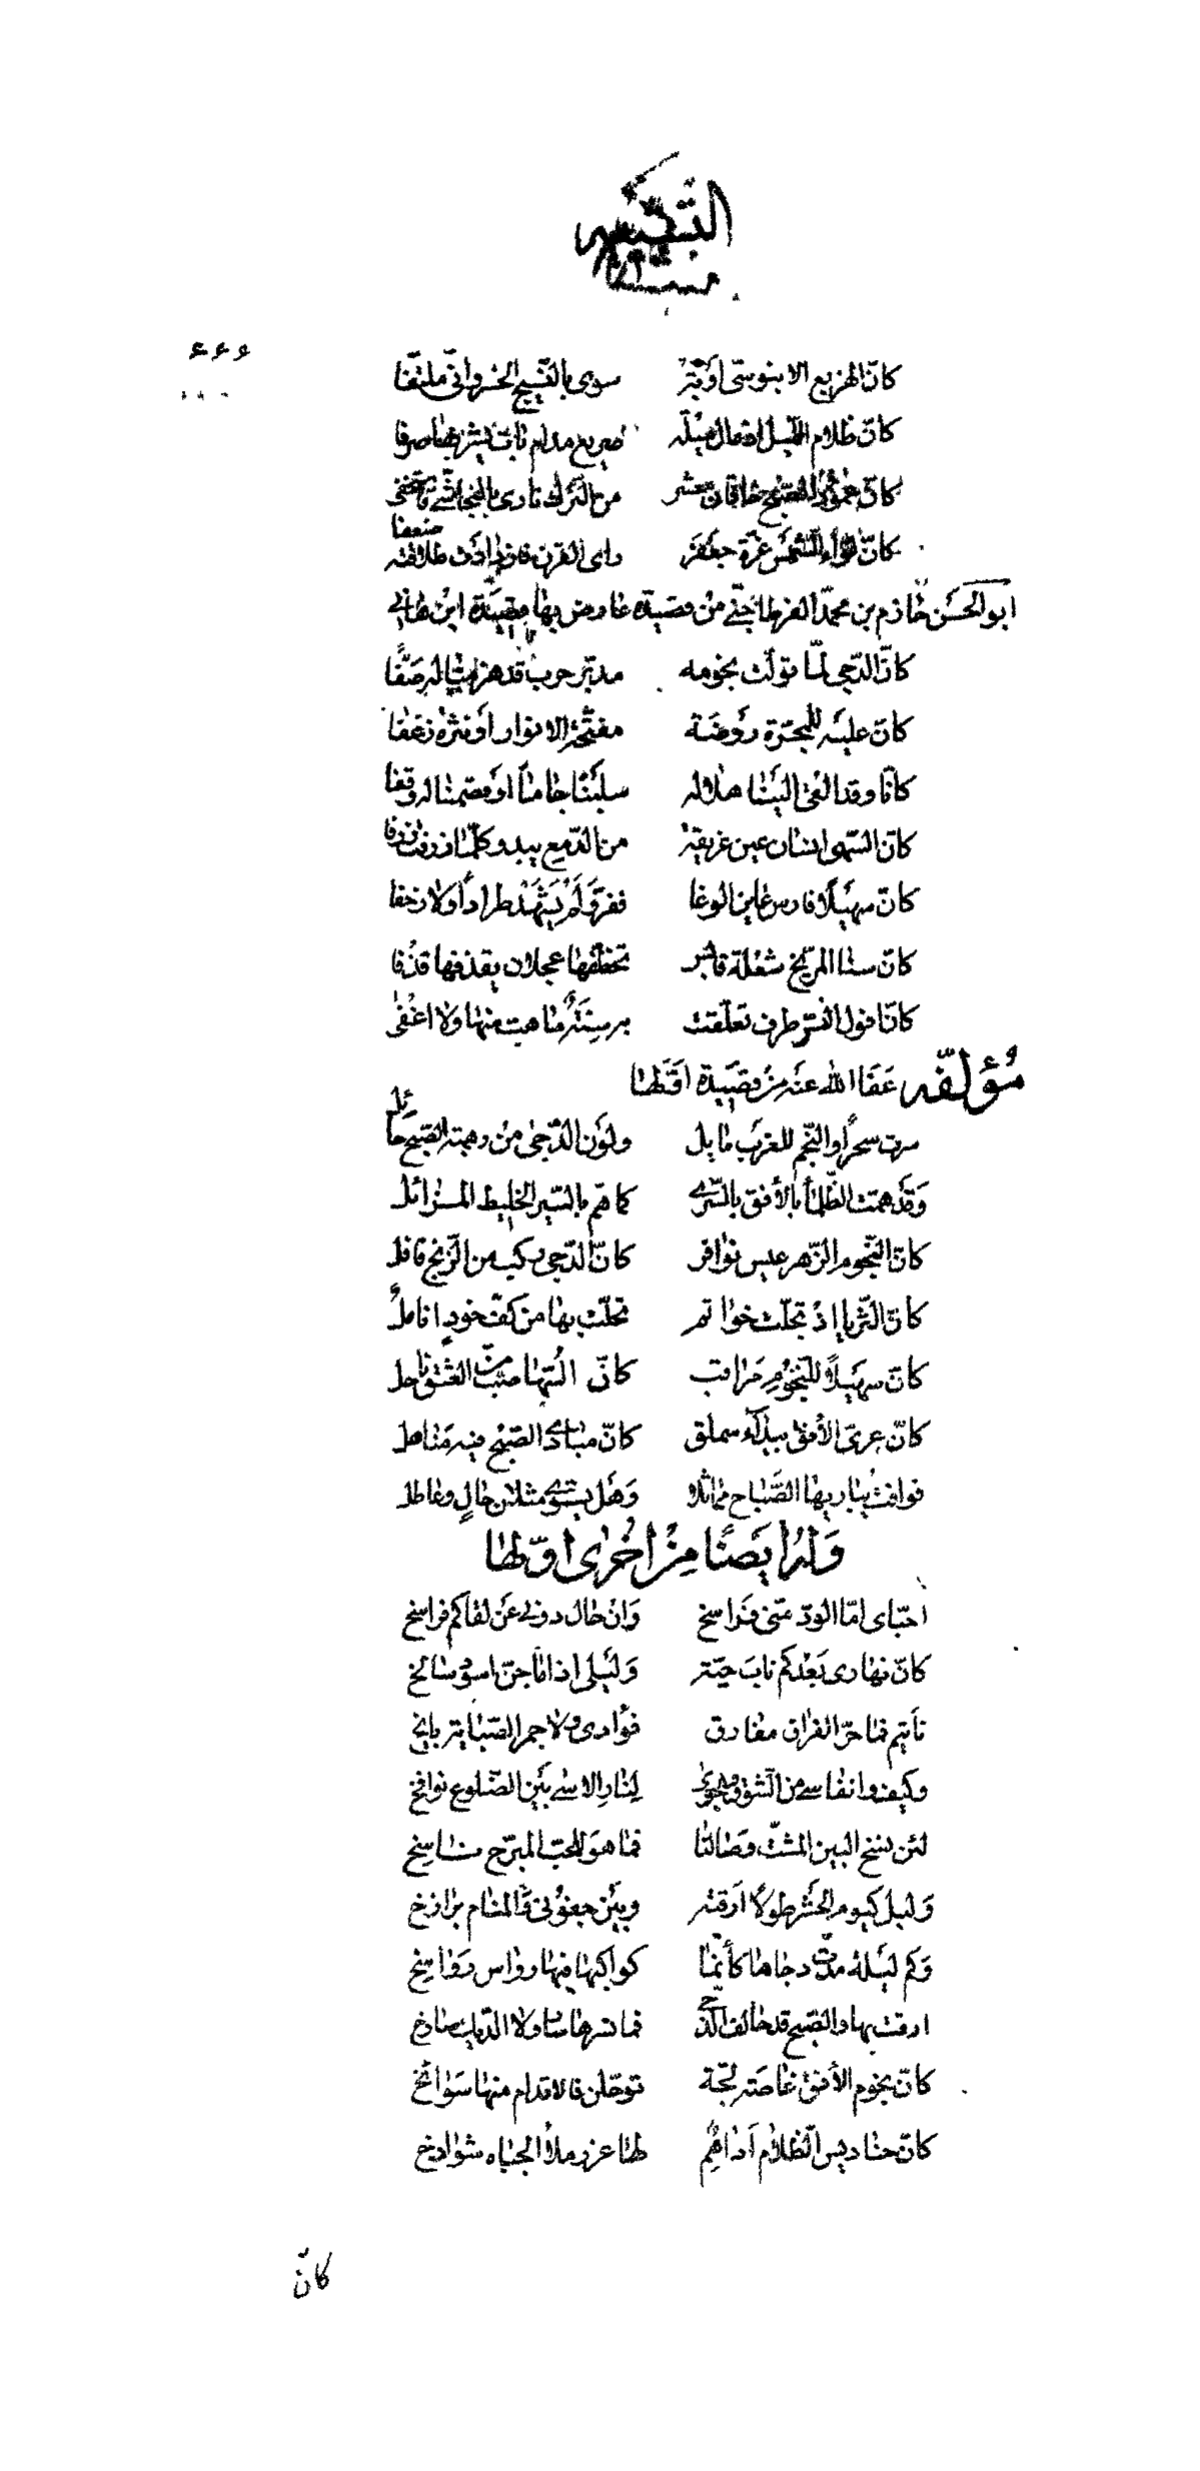 التشبيه
٤٤٤
كانّ الهزيع الابنوسىّ اوبته سرى بالنسيج الخسروانىّ ملتفّا
كانّ ظلام الليل اذ مال ميله صريع مدام بات يشربها صرفا
كانّ عمود الصبح خاقان معشر من الترك نادى بالنجاشى فاستخفى
كانّ لواء الشمس غرّة جعفر راى القرن فازدادت طلاقته ضعفا
ابو الحسن حازم بن محمّد القرطاجنّى من قصيدة عارض بها قصيدة ابن هانى
كانّ الدّجى لمّا تولّت نجومه مدبّر حرب قد هزمنا له صفّا
كانّ عليه للمجرّة روضة مفتّحة الانوار او نثرة زغفا
كانّا وقد القى الينا هلاله سلبناه جاما او فصمنا له وقفا
كانّ السّهى انسان عين غريقة من الدّمع يبدو كلّما ذرفت ذرفا
كانّ سهيلا فارس عاين الوغا ففرّ ولم يشهد طرادا ولا زحفا
كانّ سنا المرّيخ شعلة قابس تخطّفها عجلان يقذفها قذفا
كانّ افول النسر طرف تعلّقت به سنة ما هبّ منها ولا اغفى
مؤلّفه عفا الله عنه من قصيدة اوّلها
سرت سحرا والنّجم للغرب مايل ولون الدّجى من رهبة الصّبح حائل
وقد همّت الظّلماء بالأفق بالسّرى كما همّ بالسّير الخليط المزائل
كانّ النّجوم الزّهر عيس نوافر كانّ الدّجى ركب من الزّنج قافل
كانّ الثّريا إذ تجلّت خواتم تحلّت بها من كفّ خود انامل
كانّ سهيلاً للنّجوم مراقب كانّ السّها صبّ من العشق ناحل
كانّ عرىّ الأفق بيداء سملق كانّ مبادى الصّبح فيه مناهل
فوافت يباريها الصّباح مماثلا وهل يستوى مثلان حالٍ وعاطل
وله ايضًا من اخرى اوّلها
احبّاى امّا الودّ منّى فراسخ وان حال دونى عن لقاكم فراسخ
كانّ نهارى بعدكم ناب حيّة وليلى اذا ما جنّ اسود سالخ
نأيتم فما حرّ الفراق مفارق فؤادى ولا جمر الصّبابة بايخ
وكيف وانفاسى من الشّوق والجوى لنار الاسى بين الضّلوع نوافخ
لئن نسخ البين المشتّ وصالنا فما هو للحبّ المبرّح ناسخ
وليل كيوم الحشر طولاً ارقته وبين جفونى والمنام برازخ
وكم ليلة مدّت دجاها كأنّما كواكبها فيها رواس رواسخ
ارقت بها والصّبح قد حالف الدّجى فما نسرها سار ولا الدّيك صارخ
كانّ نجوم الأفق غاصته لجّة توحّلن فالاقدام منها سوائخ
كانّ حناديس الظّلام اداهم لها غرر ملأ الجباه شوادخ
كانّ